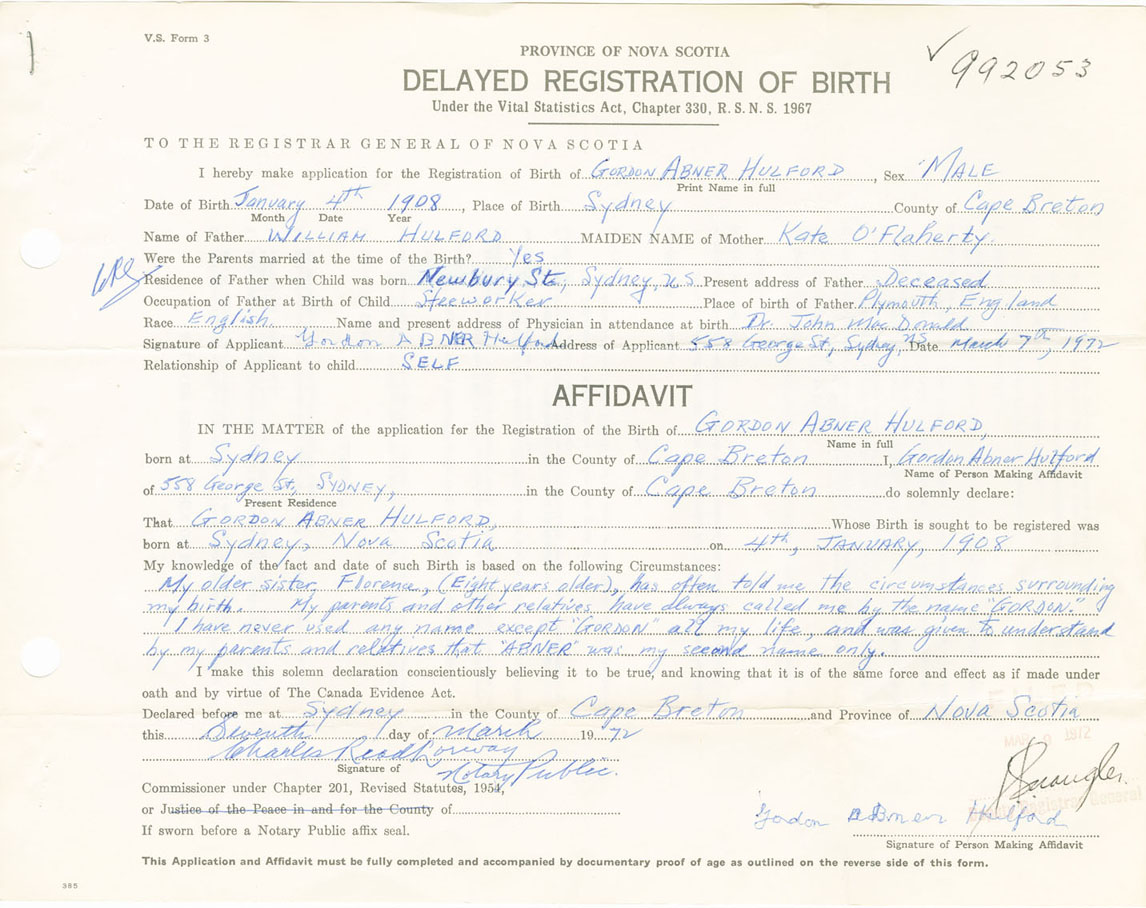 V.S. Form 3
PROVINCE OF NOVA SCOTIA
992053
DELAYED REGISTRATION OF BIRTH
Under the Vital Statistics Act, Chapter 330, R.S.N.S. 1967
TO THE REGISTRAR GENERAL OF NOVA SCOTIA
I hereby make application for the Registration of Birth of GORDON ABNER HULFORD, Sex MALE
Print Name in full
Date of Birth January 4th 1908, Place of Birth Sydney County of Cape Breton
Month Date Year
Name of Father WILLIAM HULFORD MAIDEN NAME of Mother Kate O'Flaherty
Were the Parents married at the time of the Birth? Yes
Residence of Father when Child was born Newbury St., Sydney, N.S. Present address of Father Deceased
Occupation of Father at Birth of Child Steeworker Place of birth of Father Plymouth, England
Race English Name and present address of Physician in attendance at birth Dr. John MacDonald
Signature of Applicant Gordon ABNER Hulford Address of Applicant 558 George St, Sydney, NS Date March 7th, 1972
Relationship of Applicant to child SELF
AFFIDAVIT
IN THE MATTER of the application for the Registration of the Birth of GORDON ABNER HULFORD
Name in full
born at Sydney in the County of Cape Breton I, Gordon Abner Hulford
Name of Person Making Affidavit
of 558 George St, SYDNEY, in the County of Cape Breton do solemnly declare:
Present Residence
That GORDON ABNER HULFORD, Whose Birth is sought to be registered was
born at Sydney, Nova Scotia on 4th, JANUARY, 1908
My knowledge of the fact and date of such Birth is based on the following Circumstances:
My older sister, Florence, (Eight years older), has often told me the circumstances surrounding
my birth. My parents and other relatives have always called me by the name "GORDON."
I have never used any name except "GORDON" all my life, and was given to understand
by my parents and relatives that "ABNER" was my second name only.
I make this solemn declaration conscientiously believing it to be true, and knowing that it is of the same force and effect as if made under
oath and by virtue of The Canada Evidence Act.
Declared before me at Sydney in the County of Cape Breton and Province of Nova Scotia
this Seventh day of March 1972
MAR 9 1972
Charles Read Lorway
Signature of Notary Public.
Commissioner under Chapter 201, Revised Statutes, 1954,
or Justice of the Peace in and for the County of
Registrar General
Gordon ABner Hulford
If sworn before a Notary Public affix seal.
Signature of Person Making Affidavit
This Application and Affidavit must be fully completed and accompanied by documentary proof of age as outlined on the reverse side of this form.
385